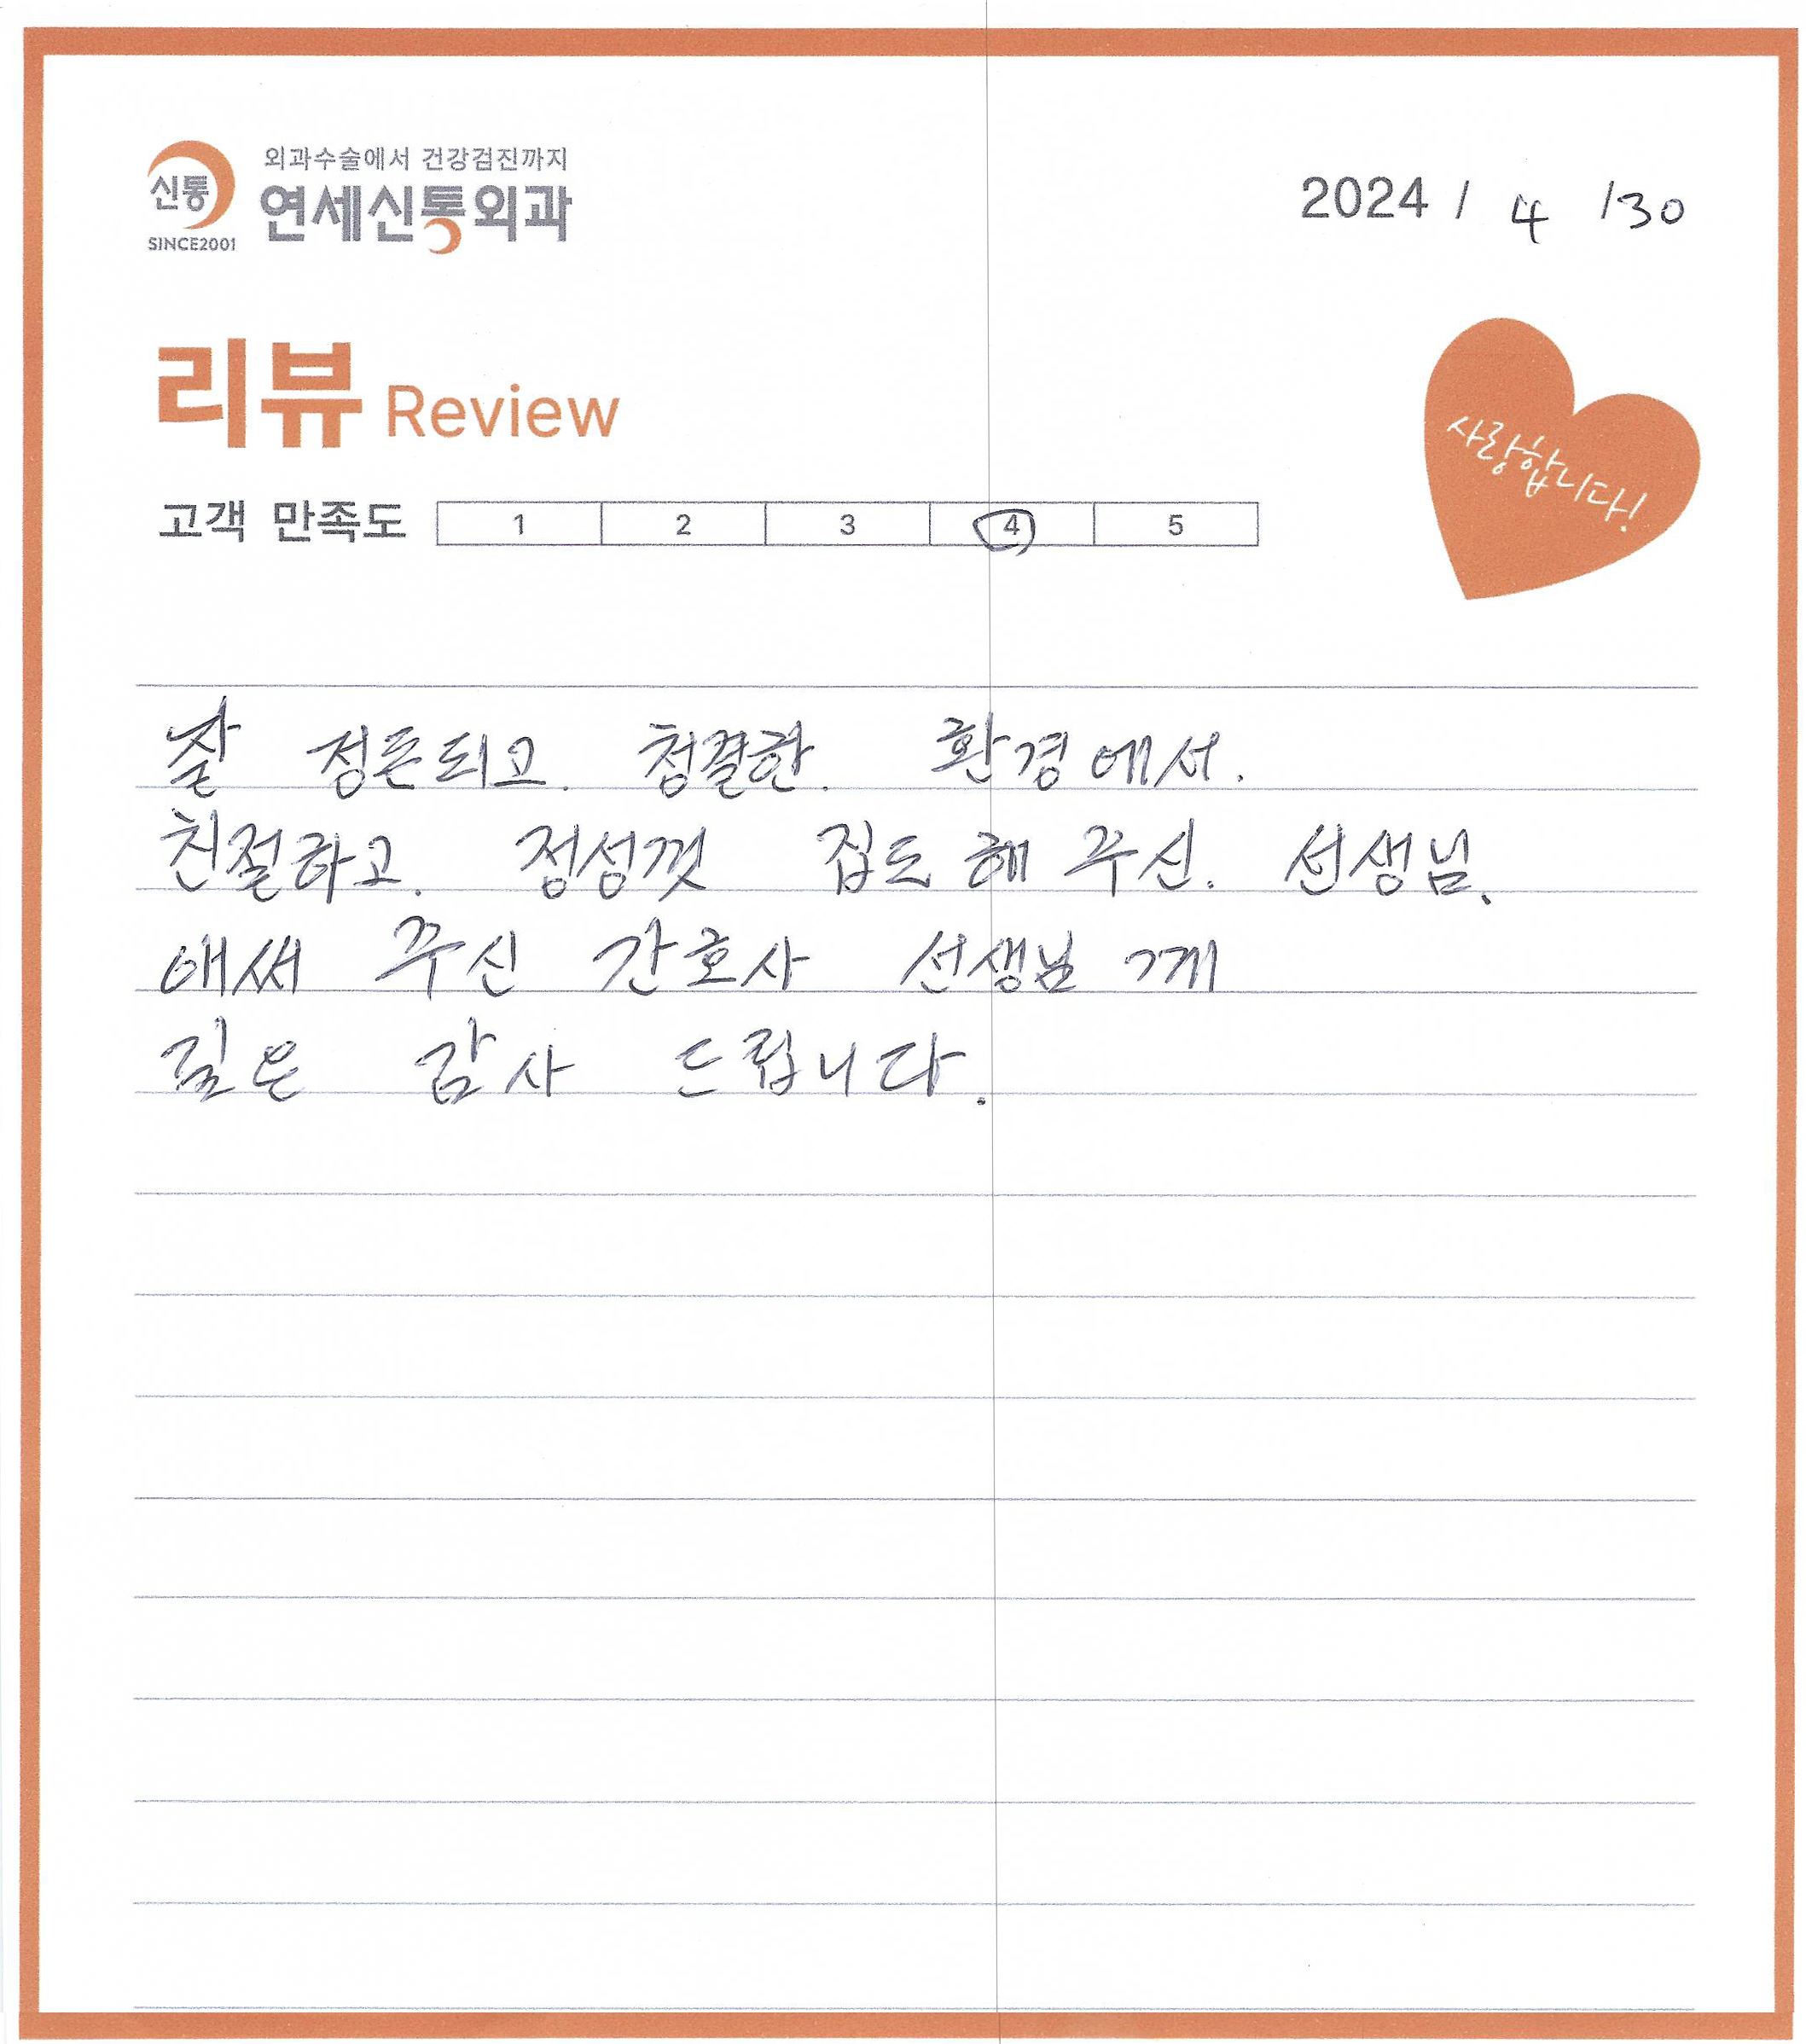 외과수술에서 건강검진까지
신통
연세신통외과
SINCE2001
2024 / 4 /30
리뷰 Review
사랑합니다!
고객 만족도 1 2 3 4 5
잘 정돈되고. 청결한. 환경에서.
친절하고. 정성껏 집도해 주신. 선생님.
애써 주신 간호사 선생님께
깊은 감사 드립니다.